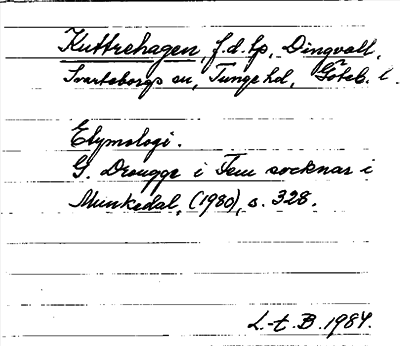 Kuttrehagen, f.d. tp, Dingvall,
Svarteborgs sn, Tunge hd, Göteb. l.
Etymologi.
G. Drougge i Fem socknar i
Munkedal, (1980), s. 328.
L-t. B. 1984.